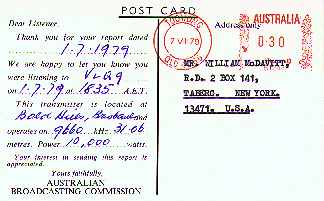 POST CARD
Dear Listener,
Thank you for your report dated
1.7.1979
We are happy to let you know you
were listening to VLQ9
on 1.7.79 at 1835 A.E.T.
This transmitter is located at
Bald Hills, Brisbane and
operates on 9660 kHz 31.06
metres. Power 10,000 watts.
Your interest in sending this report is
appreciated.
Yours faithfully,
AUSTRALIAN
BROADCASTING COMMISSION
Address only
7 VI 79
AUSTRALIA
0.30
MR. WILLIAM McDAVITT,
R.D. 2 BOX 141,
TABERG. NEW YORK.
13471. U.S.A.